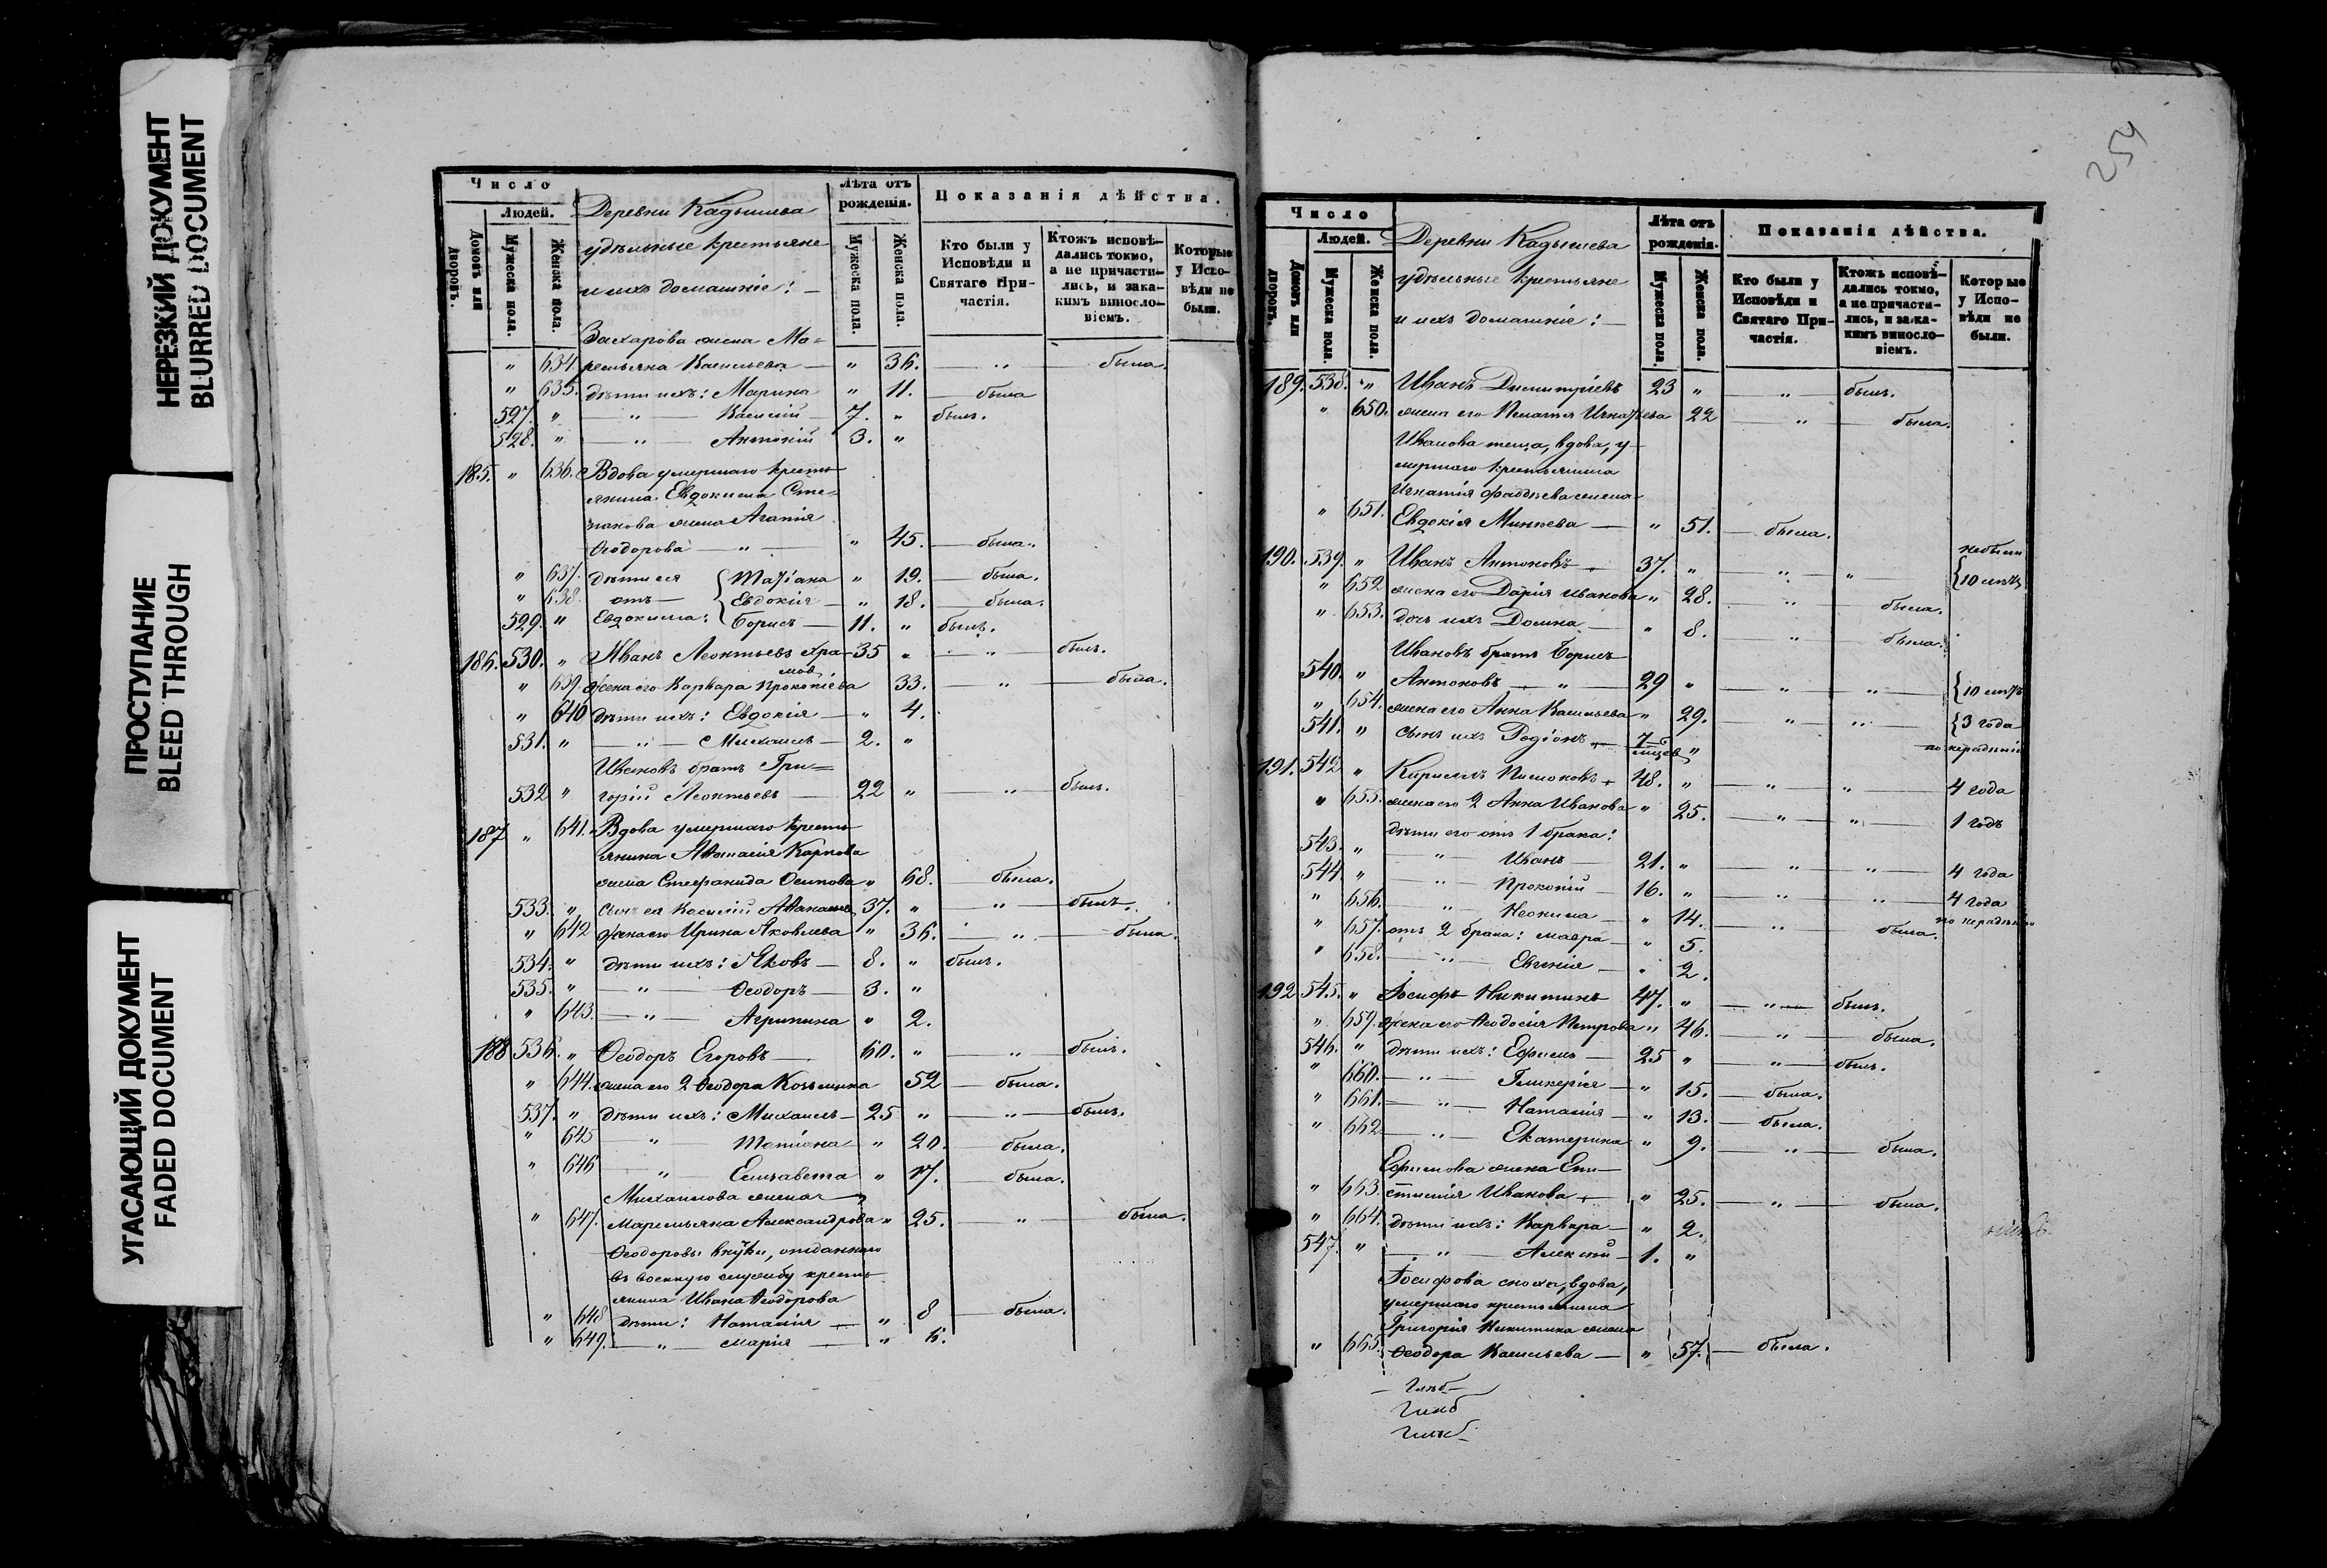 НЕРЕЗКИЙ ДОКУМЕНТ
BLURRED DOCUMENT
ПРОСТУПАНИЕ
BLEED THROUGH
УГАСАЮЩИЙ ДОКУМЕНТ
FADED DOCUMENT
Число
Людей.
Домовъ или дворовъ.
Мужеска пола.
Женска пола.
Деревни Кадышева
удѣльные крестьяне
и ихъ домашніе: —
Лѣта отъ рожденія.
Мужеска пола.
Женска пола.
Показанія дѣйства.
Кто были у Исповѣди и Святаго Причастія.
Ктожъ исповѣдались токмо, а не причастились, и закакимъ винословіемъ.
Которые у Исповѣди не были.
Захарова жена Ма=
" 634. ремьяна Васильева — " 36. — " — была.
" 635. дѣти ихъ: Марина " 11. — была
527. " — " — Василій 7. " былъ.
528. " — " — Антоній 3. "
185. " 636. Вдова умершаго кресть
янина Евдокима Сте=
панова жена Агапія
Ѳеодорова — " — " 45. — была.
" 637. дѣти ея { Татіана " 19. — была.
" 638. отъ — { Евдокія — " 18. — была.
529. " Евдокима: { Борисъ — 11. " былъ.
186. 530. " Иванъ Леонтьевъ Хра- 35 " — " — былъ.
мов
" 639. жена его Варвара Прокопіева 33. — " — была.
" 640 дѣти ихъ: Евдокія — " 4.
531. " — " — Михаилъ — 2. "
Ивановъ братъ Гри=
532 " горій Леонтьевъ — 22 " — " — былъ.
187 " 641. Вдова умершаго кресть
янина Аѳанасія Карпова
жена Стефанида Осипова " 68. — была.
533. " сынъ ея Василій Аѳанасьев 37. " — " — былъ.
" 642 жена его Ирина Яковлева " 36. — " — была.
534. " дѣти ихъ: Яковъ — 8. " былъ.
535. " — " — Ѳеодоръ — 3. "
" 643. — " — Агрипина " 2.
188 536. " Ѳеодоръ Егоровъ — 60. " — " — былъ.
" 644. жена его 2 Ѳеодора Козьмина 52 — была.
537. " дѣти ихъ: Михаилъ — 25 " — " — былъ.
" 645 — " — Татіана " 20. — была.
" 646 — " — Елисавета " 17. — была.
Михаилова жена
" 647. Маремьяна Александрова " 25. — " — была.
Ѳеодоровы внуки, отданнаго
въ военную службу кресть
янина Ивана Ѳеодорова
" 648 дѣти: Наталія — " 8 — была.
" 649. — " — Марія — "
254
Число
Людей.
Домовъ или дворовъ.
Мужеска пола.
Женска пола.
Деревни Кадышева
удѣльные крестьяне
и ихъ домашніе: —
Лѣта отъ рожденія.
Мужеска пола.
Женска пола.
Показанія дѣйства.
Кто были у Исповѣди и Святаго Причастія.
Ктожъ исповѣдались токмо, а не причастились, и закакимъ винословіемъ.
Которые у Исповѣди не были.
189. 538. " Иванъ Димитріевъ 23 " — " — былъ.
" 650. жена его Пелагея Игнатьева 22 — " — была.
Иванова теща, вдова, у
мершаго крестьянина
Игнатія Фаддѣева жена
" 651. Евдокія Минеева — " 51. — была.
190. 539. " Иванъ Антоновъ — 37. " — " — " — небыли {10 лѣтъ
" 652 жена его Дарія Иванова " 28. — " — была.
" 653. дочь ихъ Домна — " 8. — " — была.
Ивановъ братъ Борисъ
540. " Антоновъ — " — 29 " — " — " — {10 лѣтъ
" 654. жена его Анна Васильева " 29. — " — " — {3 года
541. " сынъ ихъ Родіонъ — 7 мѣсяцев " по нерадѣнію
191. 542 " Кириллъ — 48. " — " — " — 4 года
" 655. жена его 2 Анна Иванова " 25. — " — " — 1 годъ
дѣти его отъ 1 брака:
543. " — " — Иванъ — 21. " — " — " — 4 года
544. " — " — Прокопій — 16. " — " — " — 4 года
" 656. — " — Неонила — " 14. — " — была. по нерадѣнію
" 657. отъ 2 брака: Мавра — " 5.
" 658. — " — Евгенія — " 2.
192 545. " Іосифъ Никитинъ 47. " — " — былъ.
" 659. жена его Ѳеодосія Петрова " 46. — " — была.
546. " дѣти ихъ: Ефимъ — 25 " — " — былъ.
" 660. — " — Гликерія — " 15. — была.
" 661. — " — Наталія — " 13. — была.
" 662 — " — Екатерина " 9. — " — была.
Ефимова жена Епи—
" 663. стимія Иванова — " 25. — " — была.
" 664. дѣти ихъ: Варвара — " 2.
547. " — " — Алексѣй — 1. "
Іосифова сноха, вдова,
умершаго крестьянина
Григорія Никитина жена
" 665. Ѳеодора Васильева — " 57. — была.